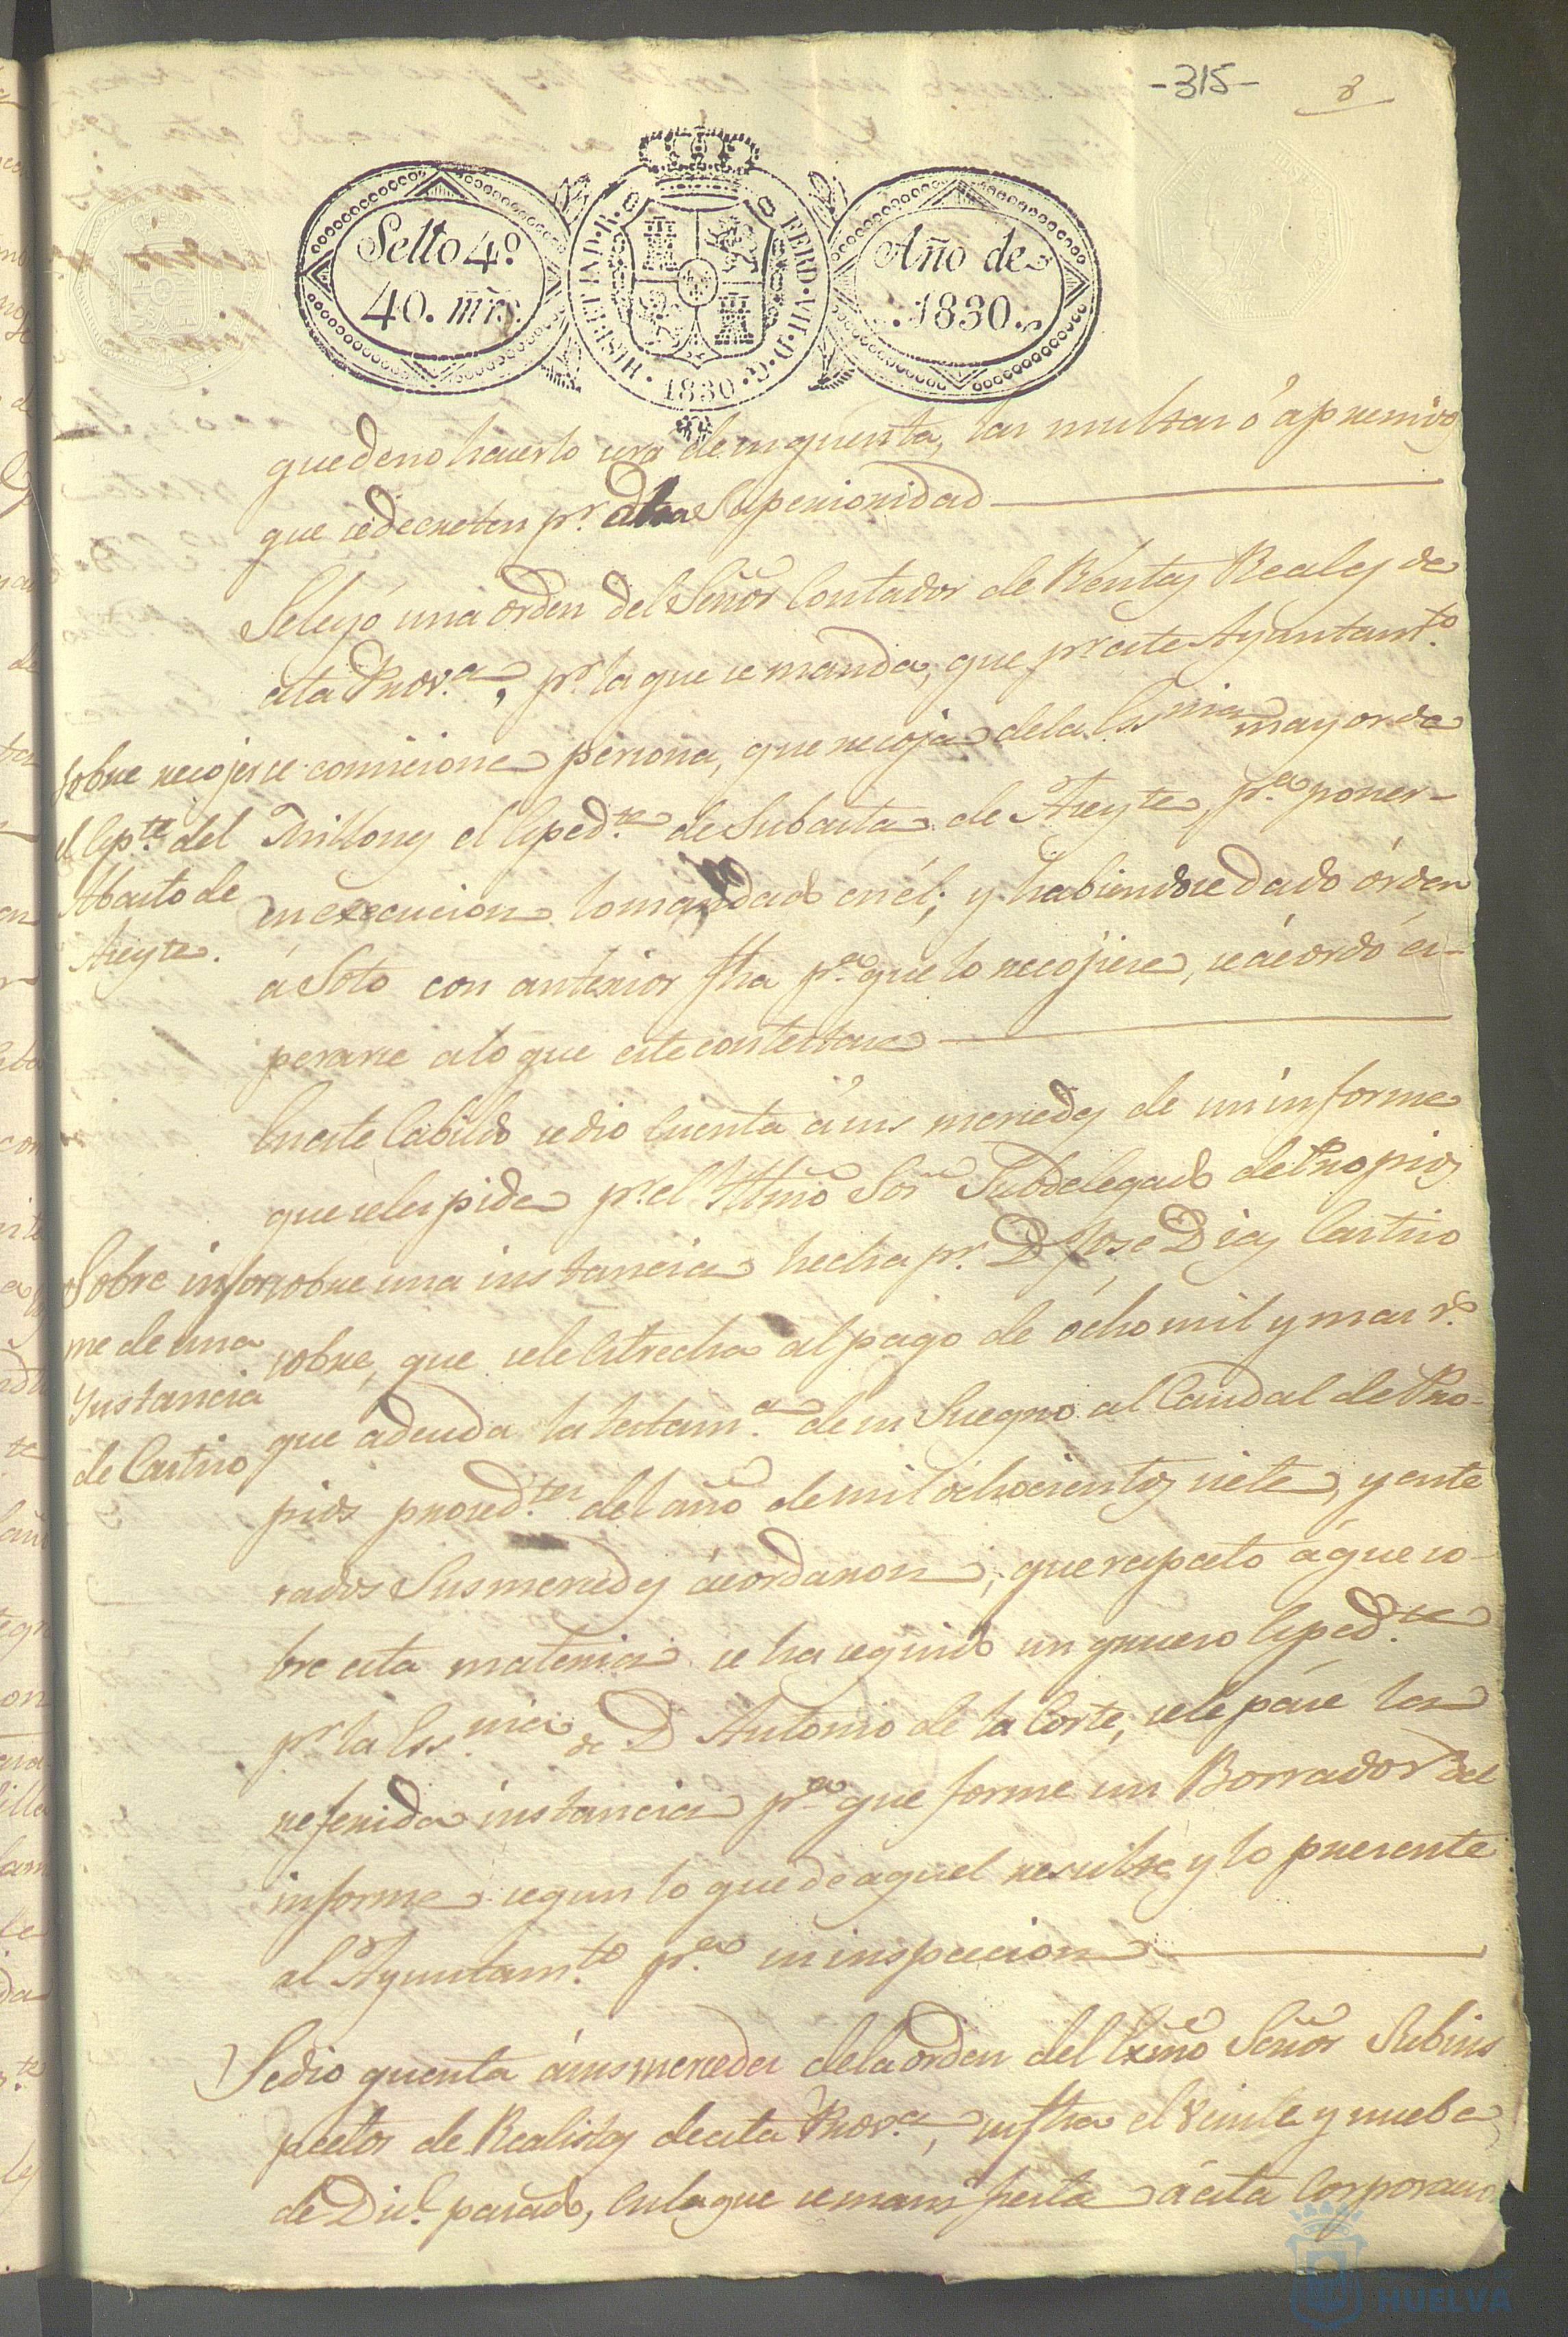 -315-
8
Sello 4º.
40. mrs.
HISP. ET IND. R. FERD. VII. D. G. 1830.
Año de
1830.
que deno hacerlo sera desuquenta, las multas ó apremios
que sedecreten pr. dha Superioridad
Seleyó una orden del Señor Contador de Rentas Reales de
esta Prova., pr. la que se manda, que pr. este Ayuntamto.
se comicione persona, que recoja dela Essnia mayor de
Millones el Espedte. de Subasta de Aseyte, pa. poner-
en execucion lo mandado en él; y habiendose dado órden
á Soto con anterior fha pa. que lo recojiese, se acordó es-
perarse alo que este contestase
Sobre recojer
el Espte. del
Abasto de
Aseyte.
Eneste Cabildo sedio Cuenta ásus mercedes de un informe
que seles pide pr. el Yltmo Sor. Subdelegado de Propios
sobre una instancia hecha pr. D José Diaz Castrio
sobre, que sele Estrecha al pago de ócho mil y mas rs.
que adeuda la testama. de su Suegro al Caudal de Pro-
pios procedtes. del año de mil ochocientos siete, y ente
rados Susmercedes ácordaron, que respecto áque so-
bre esta materia se ha seguido un grueso Espedte.
pr. la Essnia. de D Antonio de la Corte, sele páse la
referida instancia pa. que forme un Borrador del
informe segun lo que de aquel resulte, y lo presente
al Ayuntamto. pa. su inspeccion
Sobre infor
me de una
Ynstancia
de Castrio
Sedio quenta ásus mercedes dela orden del Exmo Señor Subins
pector de Realistas deesta Prova., su fha el veinte y nuebe
de Dice. pasado, enlaque semanifiesta á esta Corporacio
HUELVA